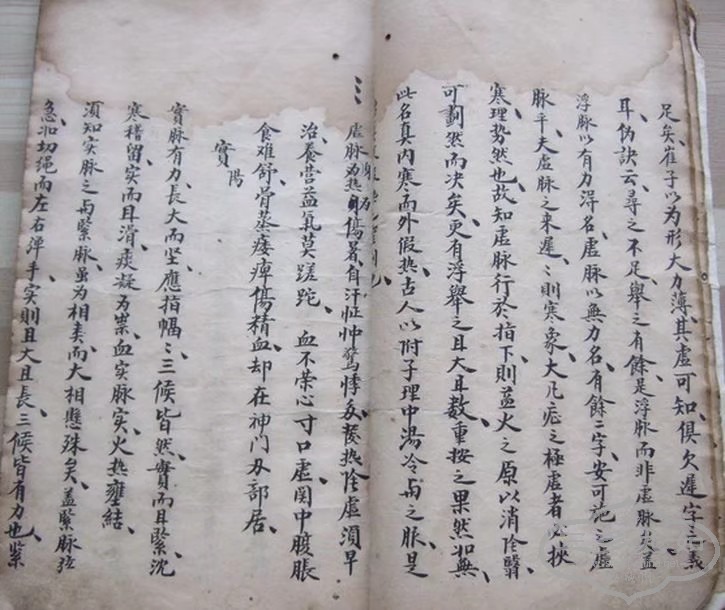 足矣崔子以为形大力薄其虛可知俱欠遲字之義
耳伪訣云尋之不足舉之有餘是浮脉而非虛脉矣盖
浮脉以有力淂名虛脉以無力名有餘二字安可施之虛
脉乎夫虛脉之来遲〻則寒象大凡症之極虛者必挾
寒理势然也故知虛脉行於指下則益火之原以消阴翳
可劃然而决矣更有浮舉之且大且数重按之果然如無
此名真内寒而外假热古人以附子理中湯冷与之服是
虛脉为热傷暑自汗怔忡驚悸多发热阴虛須早
治养营益氣莫蹉跎 血不荣心寸口虛関中腹脹
食难舒骨蒸痿痺傷精血却在神门及部居
實阳
實脉有力長大而坚應指幅〻三候皆然實而且緊沉
寒稽留實而且滑痰凝为祟血实脉实火热壅結
須知实脉之与緊脉虽为相类而大相懸殊矣盖緊脉弦
急如切绳而左右弹手实則且大且長三候皆有力也紧